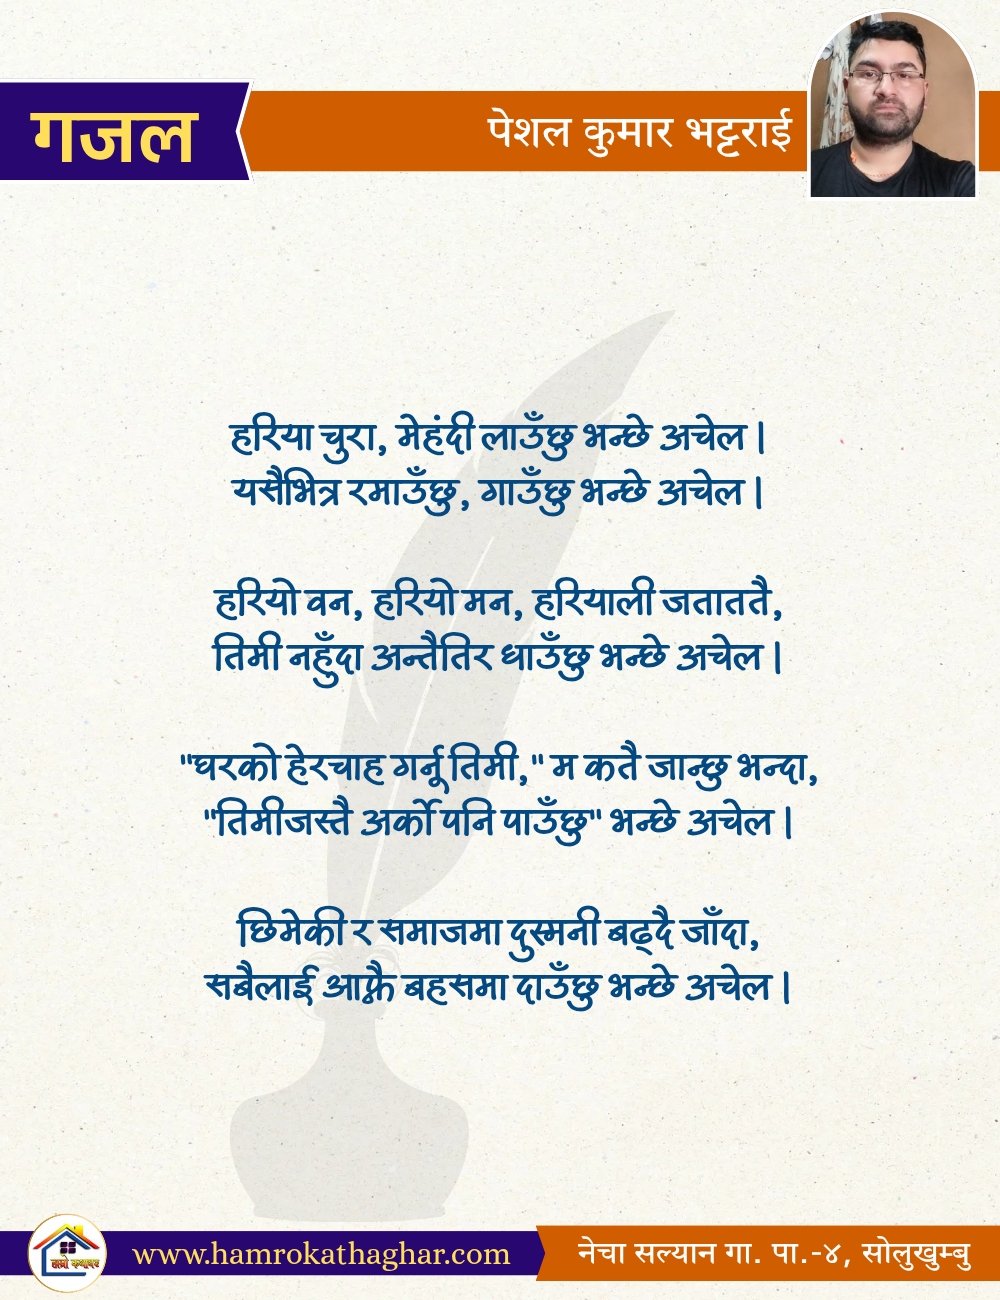 गजल
पेशल कुमार भट्टराई
हरिया चुरा, मेहंदी लाउँछु भन्छे अचेल |
यसैभित्र रमाउँछु, गाउँछु भन्छे अचेल |
हरियो वन, हरियो मन, हरियाली जताततै,
तिमी नहुँदा अन्तैतिर धाउँछु भन्छे अचेल |
"घरको हेरचाह गर्नू तिमी," म कतै जान्छु भन्दा,
"तिमीजस्तै अर्को पनि पाउँछु" भन्छे अचेल |
छिमेकी र समाजमा दुस्मनी बढ्दै जाँदा,
सबैलाई आफ्नै बहसमा दाउँछु भन्छे अचेल |
हाम्रो कथाघर
www.hamrokathaghar.com
नेचा सल्यान गा. पा.-४, सोलुखुम्बु